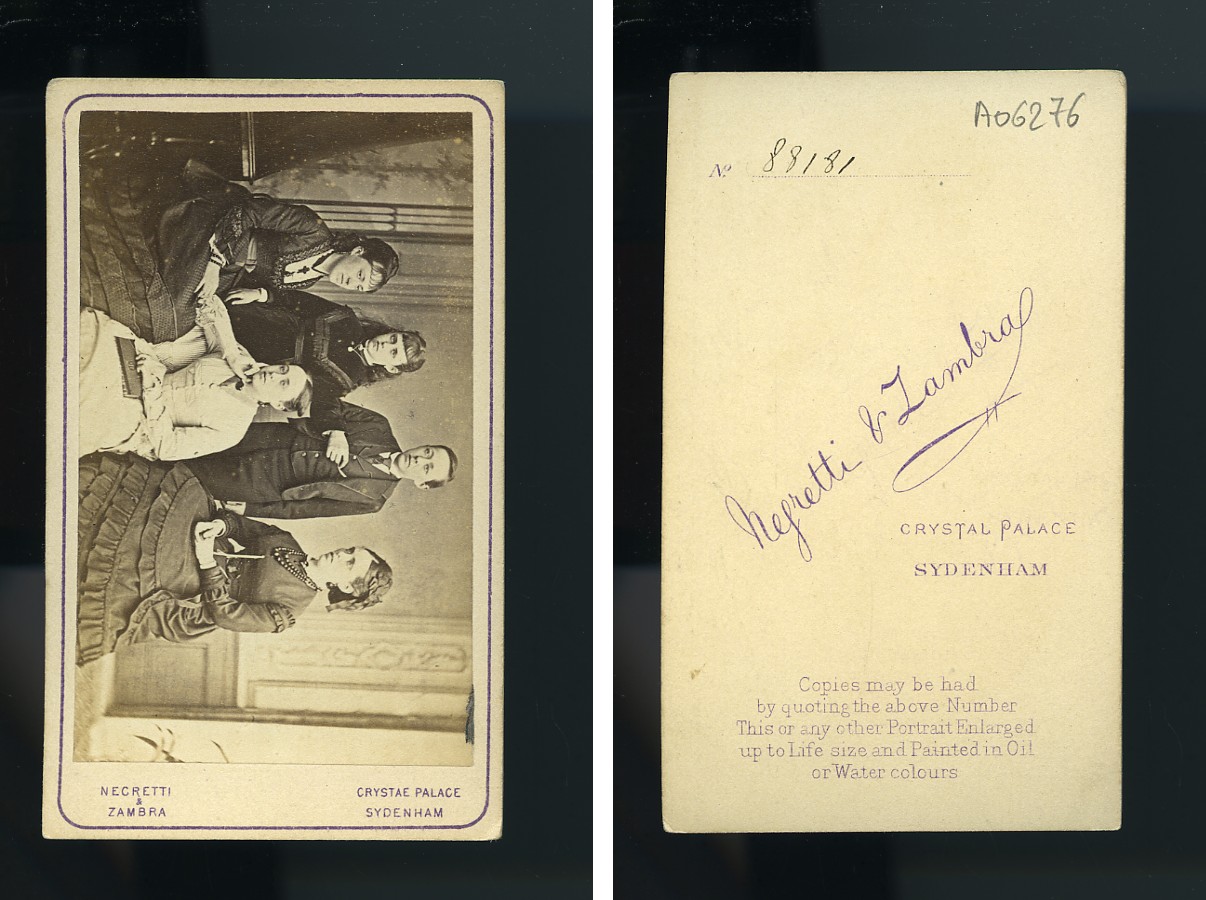 NEGRETTI
&
ZAMBRA
CRYSTAL PALACE
SYDENHAM
A06276
No 88181
Negretti & Zambra
CRYSTAL PALACE
SYDENHAM
Copies may be had
by quoting the above Number
This or any other Portrait Enlarged
up to Life size and Painted in Oil
or Water colours